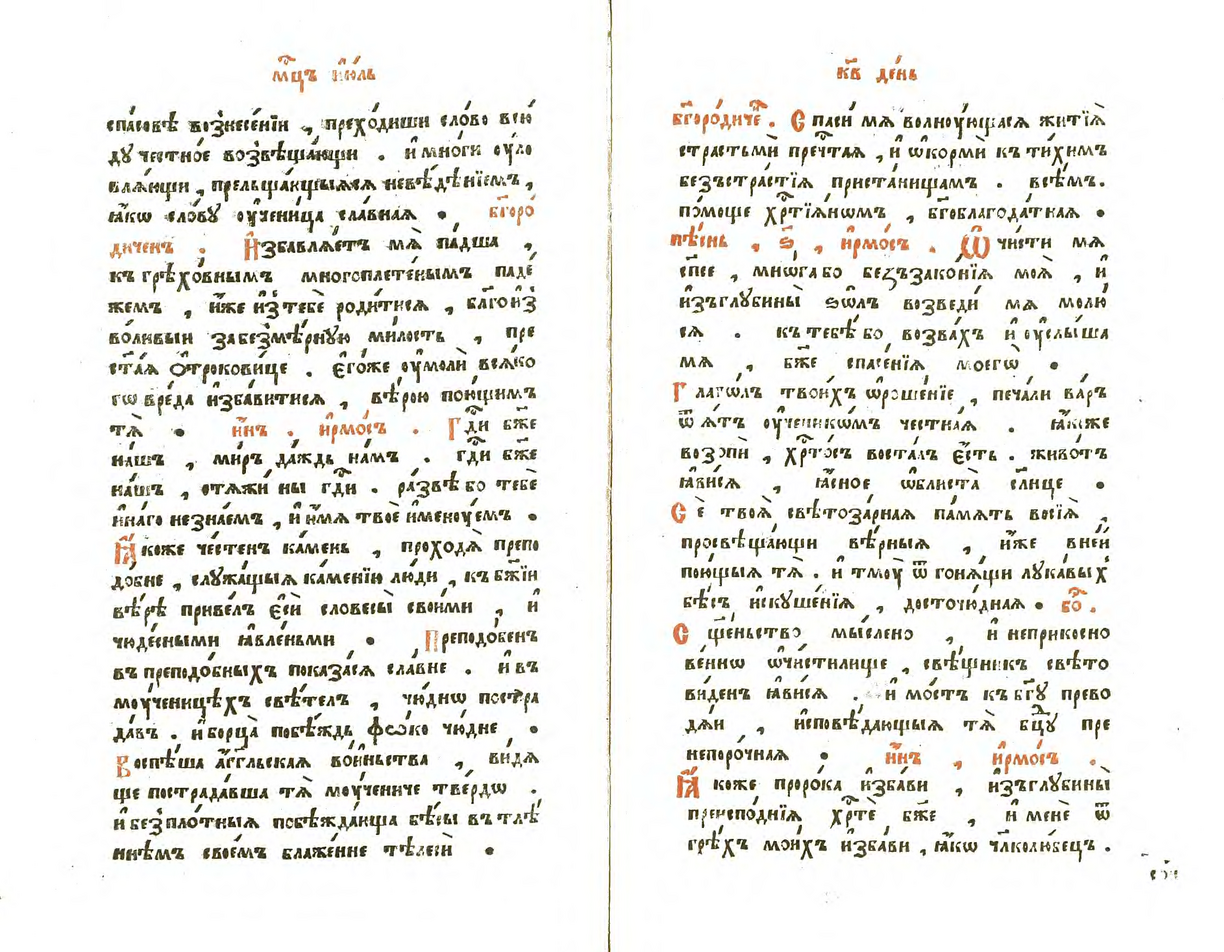 мⷭ҇цъ і҆ю́ль
спа́совѣ вознесе́нїи , преходиши сло́во всю
дꙋ честно́е возвѣща́ющи . и҆ мно́ги оу҆ло
влѧ́ющи , прельща́ющыѧсѧ невѣ́дѣнїемъ ,
ꙗ҆́кѡ сло́вꙋ оу҆ч҃ени́ца сла́внаѧ . бг҃оро́
диченъ : И҆збавлѧ́етъ мѧ̀ па́дша ,
къ грѣхо́внымъ многоплете́нымъ паде́
жемъ , и҆́же и҆зтебѐ роди́тисѧ , бл҃гоиз
во́ливыи забезмѣ́рнꙋю ми́лость , пре
ст҃аѧ Ѻ҆трокови́це . є҆го́же оу҆молѝ всѧ́ко
гѡ вре́да и҆зба́витисѧ , вѣ́рою пою́щимъ
тѧ̀ . и҆́нъ . і҆рмо́съ . Гдⷭ҇и бж҃е
на́шъ , ми́ръ да́ждь на́мъ . гдⷭ҇и бж҃е
на́шъ , стѧжѝ ны гдⷭ҇и . ра́звѣ бо тебе
и҆на́го незна́емъ , и҆ и҆́мѧ твоѐ и҆менꙋ́емъ .
Ꙗ҆́коже че́стенъ ка́мень , проходѧ̀ препо
до́бне , слꙋжа́щыѧ ка́менїю лю́ди , къ бж҃їи
вѣ́рѣ приве́лъ є҆сѝ словесы̀ свои́ми , и҆
чюде́сными ꙗ҆вле́ньми . Преподо́бенъ
въ преподо́бныхъ показа́сѧ сла́вне . и҆ въ
моу́ченицѣхъ свѣ́телъ , чю́днѡ постра
да́въ . и҆ борца̀ побѣ́ждь фѡ́ко чю́дне .
Воспѣ́ша а҆́гг҃льскаѧ во́иньства , видѧ
ще пострада́вша тѧ̀ моу́чениче тве́рдѡ .
и҆ безпло́тныѧ побѣжда́юща бѣ́сы въ тлѣ́
ннѣмъ свое́мъ блаже́нне тѣлесѝ .
к҃в де́нь
бг҃оро́диченъ . Спасѝ мѧ волнꙋ́ющасѧ житїѧ̀
страстьмѝ преч҃таѧ , и҆ ѡ҆кормѝ къ ти́химъ
безъстра́стїѧ приста́нищамъ . всѣ́мъ
по́моще хрⷭ҇тїѧ́нѡмъ , бг҃облагода́тнаѧ .
пѣ́снь , ѕ҃ , і҆рмо́съ . Ѡ҆чи́сти мѧ
сп҃се , мнѡ́га бо беззако́нїѧ моѧ̀ , и҆
и҆зъглꙋбины̀ ѕѡ́лъ возведѝ мѧ молю́
сѧ . къ тебѣ́ бо возва́хъ и҆ оу҆слы́ша
мѧ , бж҃е спасе́нїѧ моегѡ̀ .
Глаго́лъ твои́хъ ѡ҆роше́нїе , печа́ли ва́ръ
ѿ ѧ҆́тъ оу҆ченикѡ́мъ честна́ѧ . ꙗ҆́коже
возопѝ , хрⷭ҇то́съ воста́лъ є҆́сть . живо́тъ
ꙗ҆ви́сѧ , ꙗ҆́сное ѡ҆блиста̀ сл҃нце .
Сѐ твоѧ̀ свѣтоза́рнаѧ па́мѧть восїѧ̀ ,
просвѣща́ющи вѣ́рныѧ , и҆́же вне́и
пою́щыѧ тѧ̀ . и҆ тмоу̀ ѿгонѧ́щи лꙋка́выхъ
бѣ́съ и҆скꙋше́нїѧ , досточю́днаѧ . бо .
Сщ҃е́ньство мы́слено , и҆ неприкосно
ве́нно ѡ҆чисти́лище , свѣ́щникъ свѣто
ви́денъ ꙗ҆ви́сѧ . и҆ мо́стъ къ бг҃ꙋ прево
дѧ́и , и҆сповѣ́дающыѧ тѧ̀ бцⷣꙋ пре
непоро́чнаѧ . и҆́нъ , і҆рмо́съ .
Ꙗ҆́коже проро́ка и҆зба́ви , и҆зъглꙋбины̀
преиспо́днїѧ хрⷭ҇тѐ бж҃е , и҆ менѐ ѿ
грѣ́хъ мои́хъ и҆зба́ви , ꙗ҆́кѡ чл҃колю́бецъ .